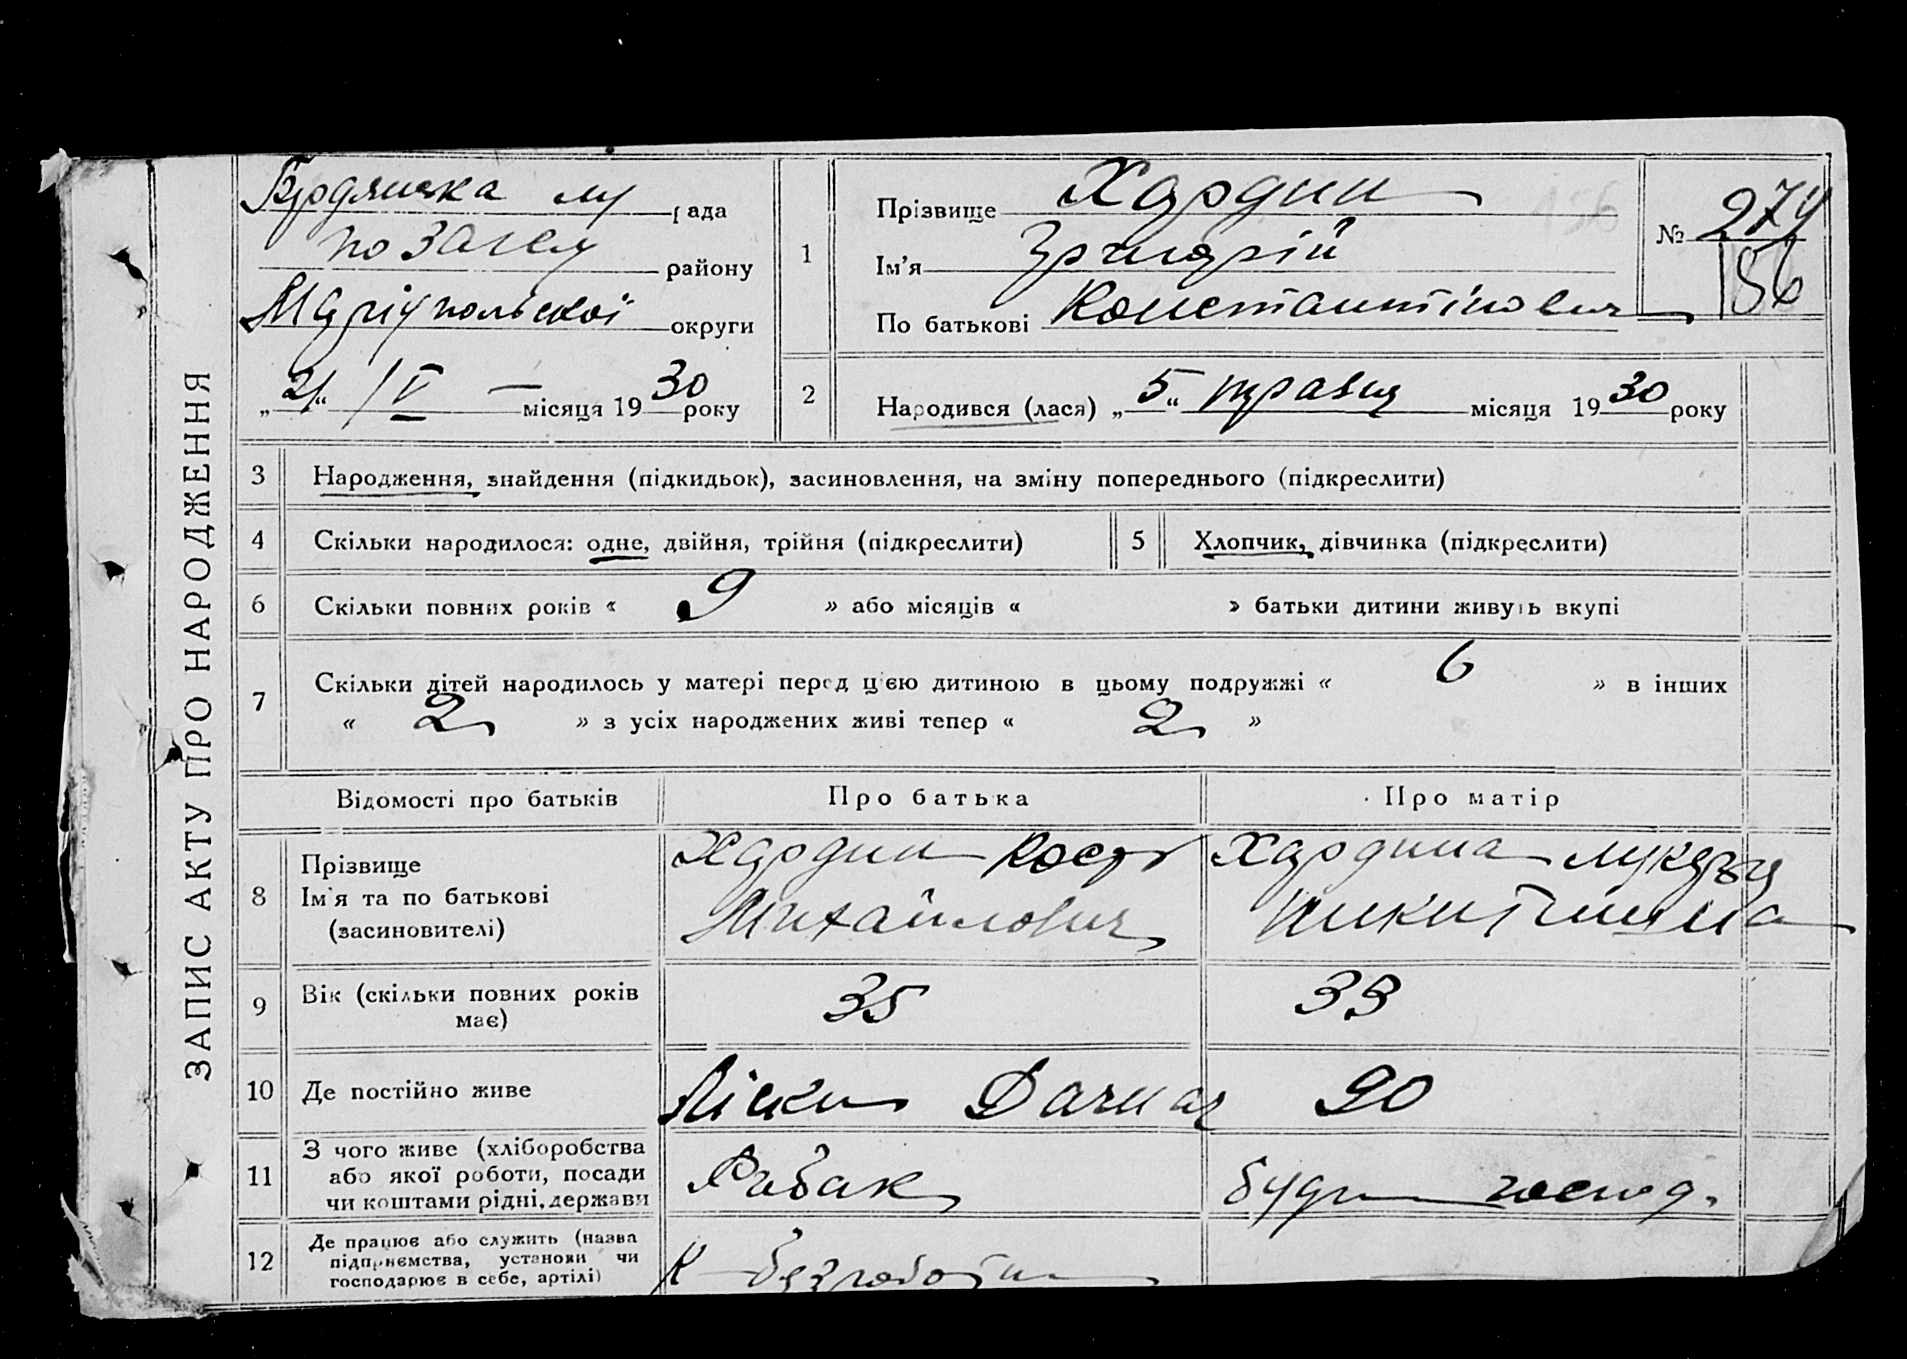 ЗАПИС АКТУ ПРО НАРОДЖЕННЯ
рада
району
Маріупольської округи
„21“ /V — місяця 1930 року
1
Прізвище Хардин
Ім'я Григорій
По батькові Константінович
№ 274
186
156
2 Народився (лася) „5“ травня місяця 1930 року
3 Народження, знайдення (підкидьок), засиновлення, на зміну попереднього (підкреслити)
4 Скільки народилося: одне, двійня, трійня (підкреслити) 5 Хлопчик, дівчинка (підкреслити)
6 Скільки повних років « 9 » або місяців « » батьки дитини живуть вкупі
7 Скільки дітей народилось у матері перед ц'єю дитиною в цьому подружжі « 6 » в інших
« 2 » з усіх народжених живі тепер « 2 »
Відомості про батьків Про батька Про матір
8 Прізвище
Ім'я та по батькові
(засновителі)
Хардин Кост
Михайлович
Хардина
9 Вік (скільки повних років
має) 35 33
10 Де постійно живе Ліски Дачная до
11 З чого живе (хліборобства
або якої роботи, посади
чи коштами рідні, держави
Рибак
господ.
12 Де працює або служить (назва
підприємства, установи чи
господарює в себе, артілі)